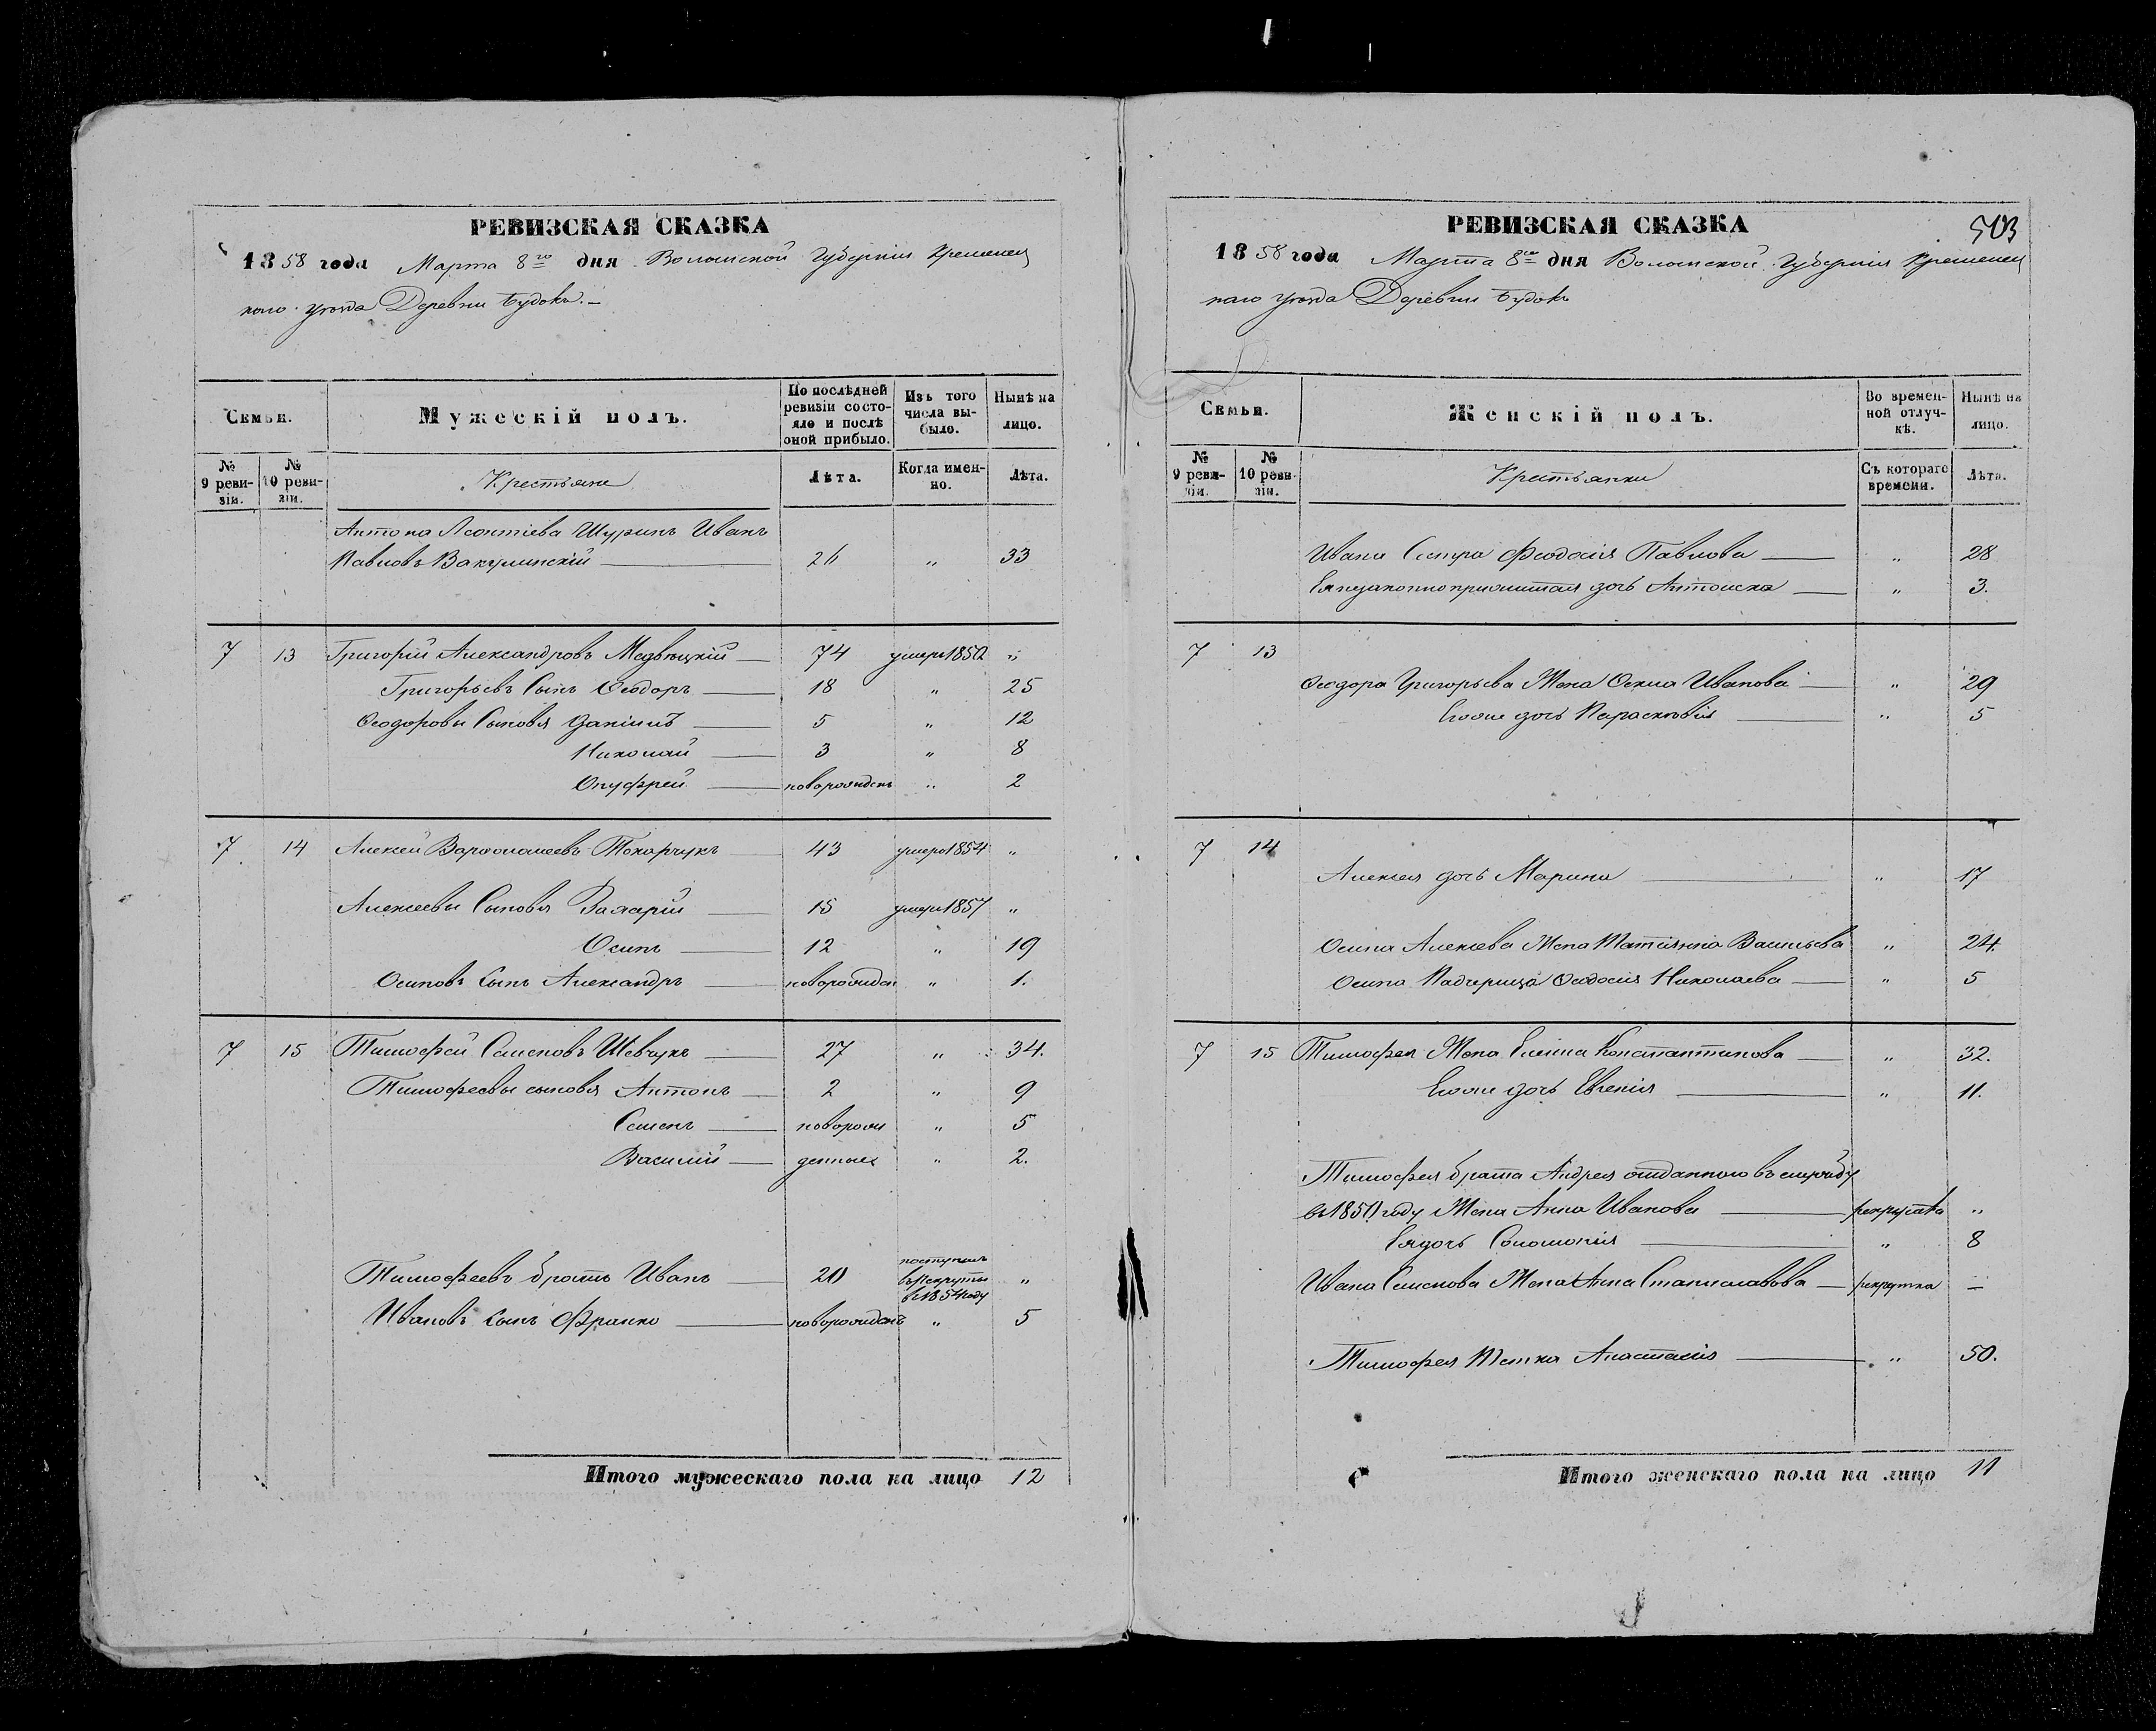 РЕВИЗСКАЯ СКАЗКА
1858 года Марта 8го дня Волынской Губерніи Кременец
каго уѣзда Деревни Будокъ.
Семьи.
Мужескій полъ.
По послѣдней ревизіи состояло и послѣ оной прибыло.
Изъ того числа выбыло.
Нынѣ на лицо.
№ 9 ревизіи.
№ 10 ревизіи.
Крестьяне
Лѣта.
Когда именно.
Лѣта.
Антона Леонтіева Шуринъ Иванъ
Павловъ Вакулинскій 26 " 33
7 13 Григорій Александровъ Медвецкій 74 умеръ 1850 "
Григорьевъ Сынъ Ѳеодоръ 18 " 25
Ѳеодоровы Сыновья Даніилъ 5 " 12
Николай 3 " 8
Онуфрей новорожденъ " 2
7 14 Алексей Варѳоломеевъ Токарчукъ 43 умеръ 1854 "
Алексеевы Сыновья 15 умеръ 1857 "
Осипъ 12 " 19
Осиповъ Сынъ Александръ новорожден " 1.
7 15 Тимофей Семеновъ Шевчукъ 27 " 34.
Тимофеевы сыновья Антонъ 2 " 9
Семенъ новорож " 5
Василій денные " 2.
Тимофеевъ братъ Иванъ 20 поступилъ в рекруты в 1854 году "
Ивановъ сынъ Франко новорожденъ " 5
Итого мужескаго пола на лицо 12
503
РЕВИЗСКАЯ СКАЗКА
1858 года Марта 8го дня Волынской Губерніи Кременец
каго уѣзда Деревни Будокъ
Семьи.
Женскій полъ.
Во временной отлучкѣ.
Нынѣ на лицо.
№ 9 ревизіи.
№ 10 ревизіи.
Крестьянки
Съ котораго времени.
Лѣта.
Ивана Сестра Феодосія Павлова " 28
Ея незаконноприжитая дочь Антонина " 3.
7 13
Ѳеодора Григорьева Жена Иванова " 29
Егоже дочь Параскевія " 5
7 14
Алексея дочь Марина " 17
Осипа Алексеева Жена Татіянна Васильева " 24.
Осипа Падчерица Ѳеодосія Николаева " 5
7 15 Тимофея Жена Елена Константинова " 32.
Егоже дочь Евгенія " 11.
Тимофея брата Андрея отданного въ службу
въ 1850 году Жена Анна Иванова рекрутка "
Ея дочь Соломонія " 8
Ивана Семенова Жена Анна Станиславова рекрутка —
Тимофея Тетка Анастасія " 50.
Итого женскаго пола на лицо 11